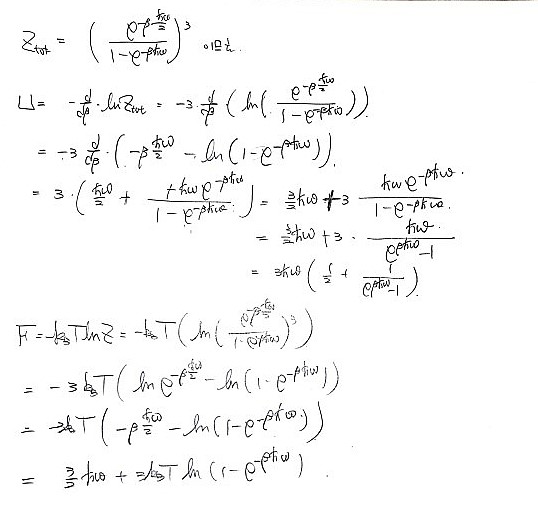 Z_tot = ( e^{-β ħω/2} / (1 - e^{-βħω}) )^3 이므로.
U = - d/dβ · ln Z_tot = -3 · d/dβ ( ln ( e^{-β ħω/2} / (1 - e^{-βħω}) ) )
= -3 d/dβ · ( -β ħω/2 - ln (1 - e^{-βħω}) ).
= 3 · ( ħω/2 + (+ħω e^{-βħω}) / (1 - e^{-βħω}) ) = 3/2 ħω + 3 ħω e^{-βħω} / (1 - e^{-βħω}).
= 3/2 ħω + 3 · ħω / (e^{βħω} - 1)
= 3ħω ( 1/2 + 1 / (e^{βħω} - 1) )
F = -k_B T ln Z = -k_B T ( ln ( e^{-β ħω/2} / (1 - e^{-βħω}) )^3 )
= -3 k_B T ( ln e^{-β ħω/2} - ln (1 - e^{-βħω}) )
= -3k_B T ( -β ħω/2 - ln (1 - e^{-βħω}) )
= 3/2 ħω + 3k_B T ln (1 - e^{-βħω}).